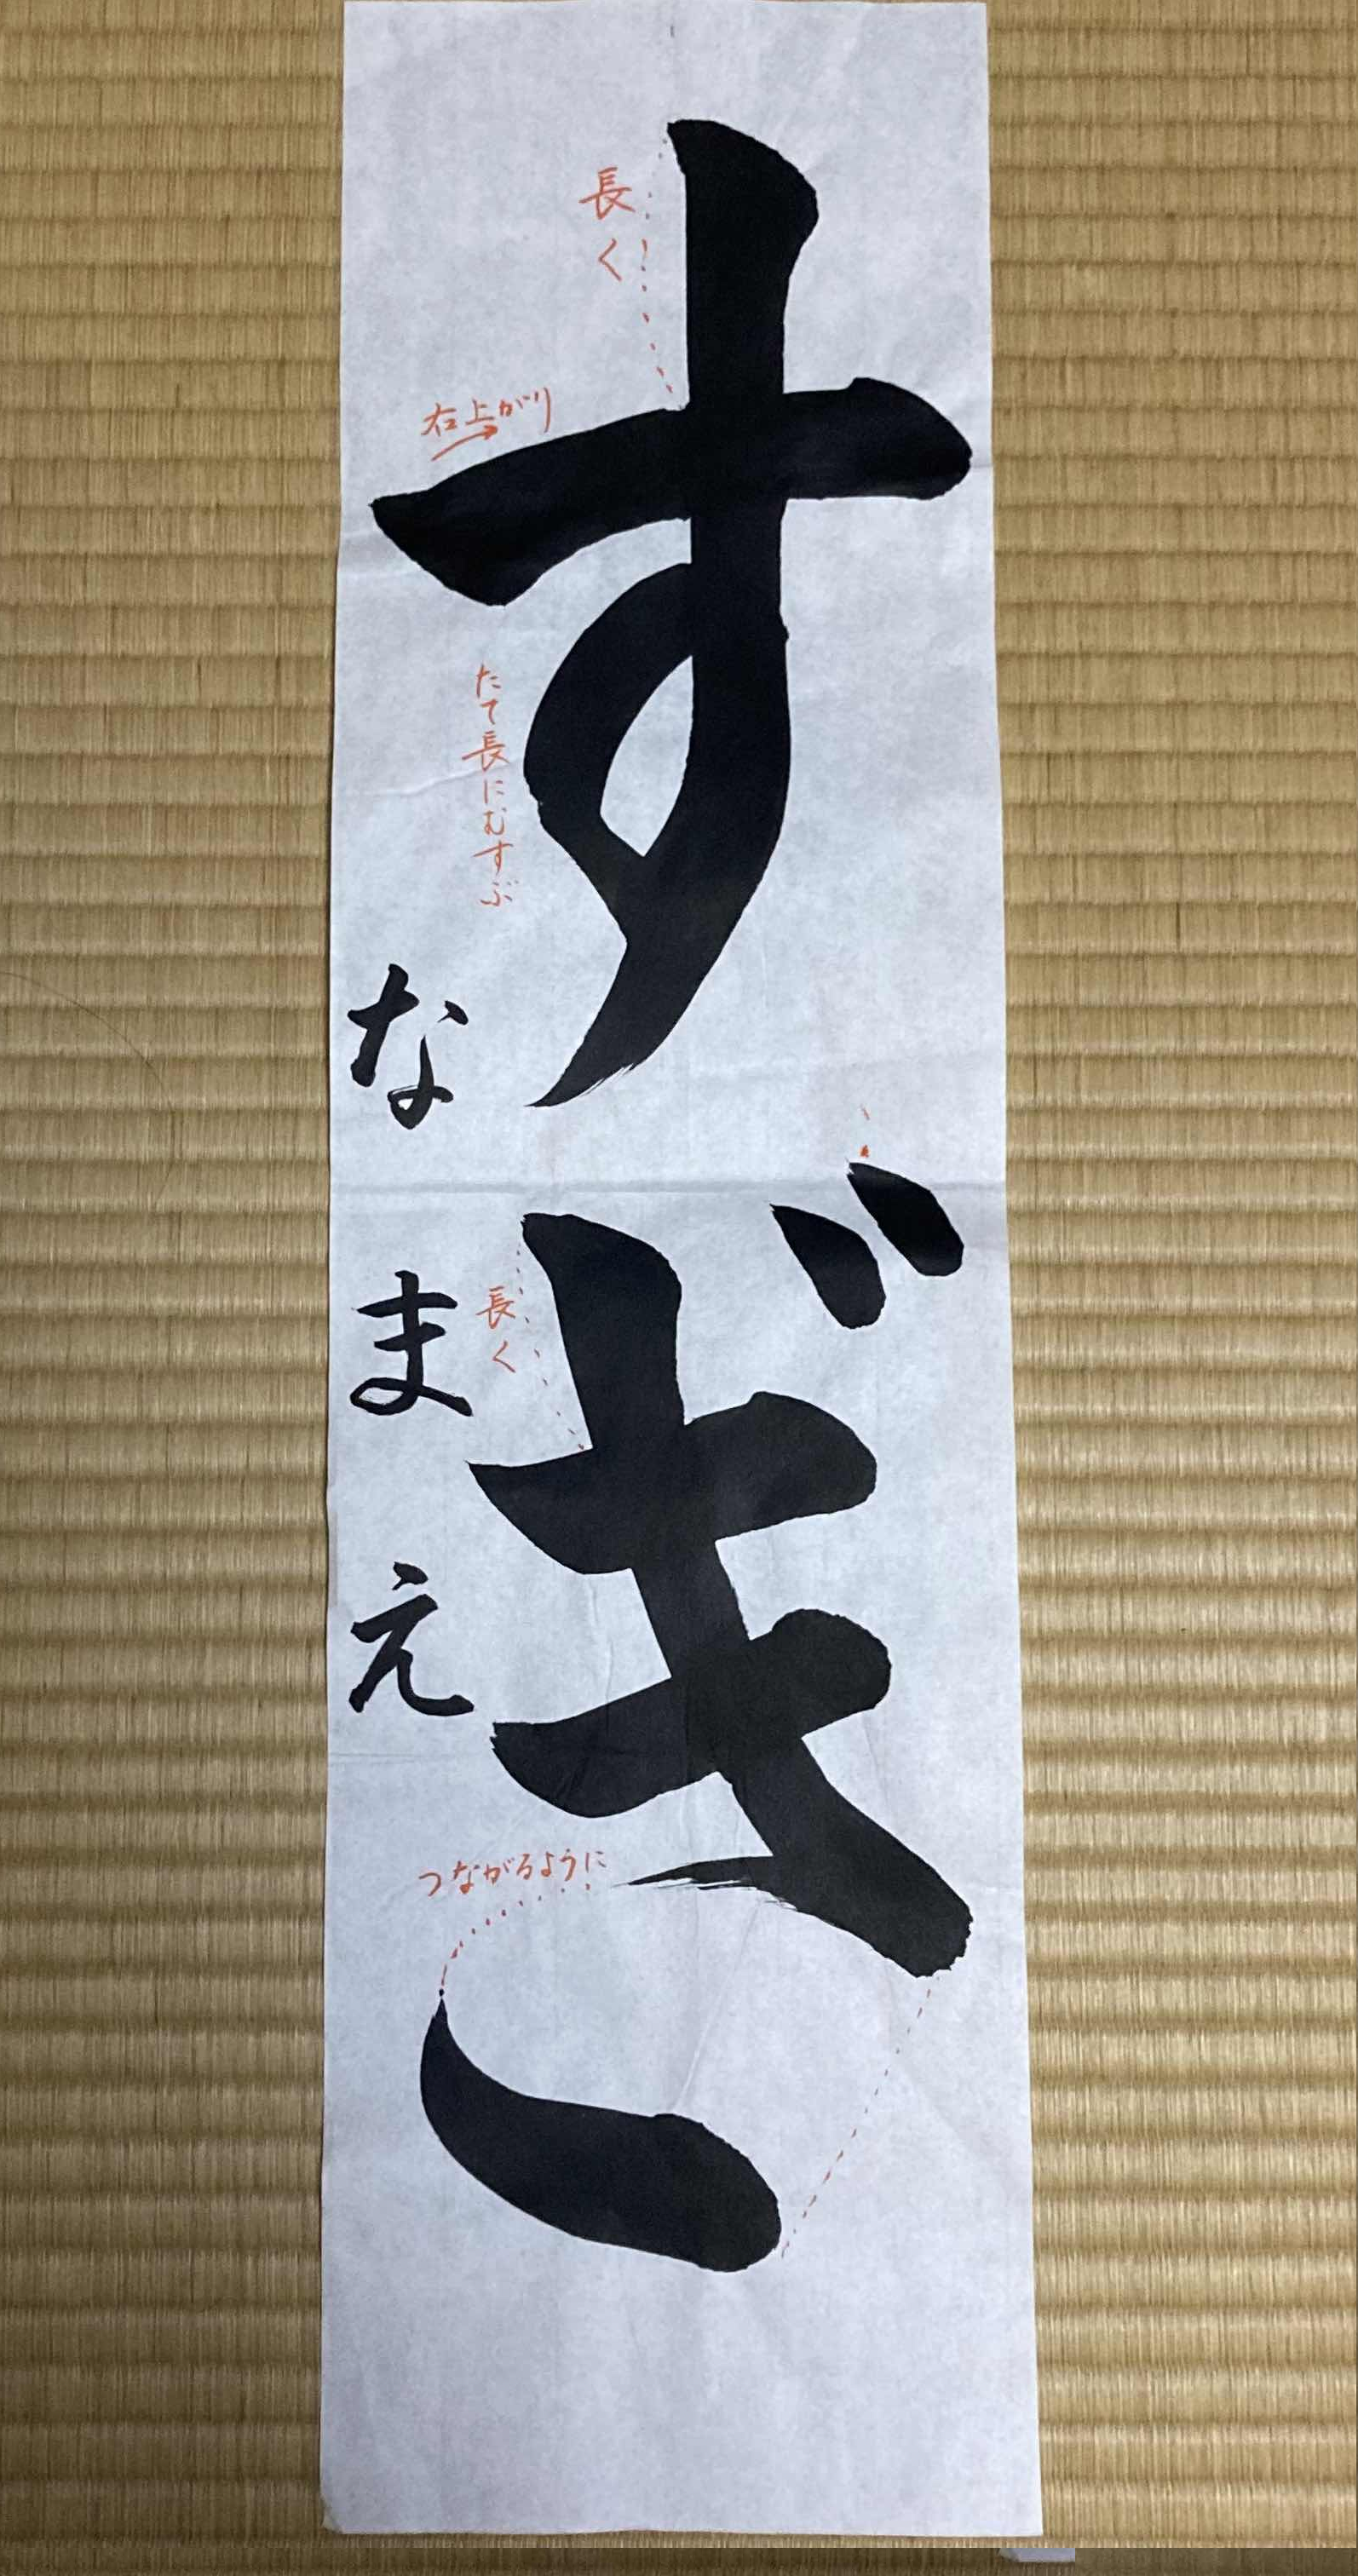 すぎ
なまえ
長く
右上がり
たて長にむすぶ
長く
つながるように